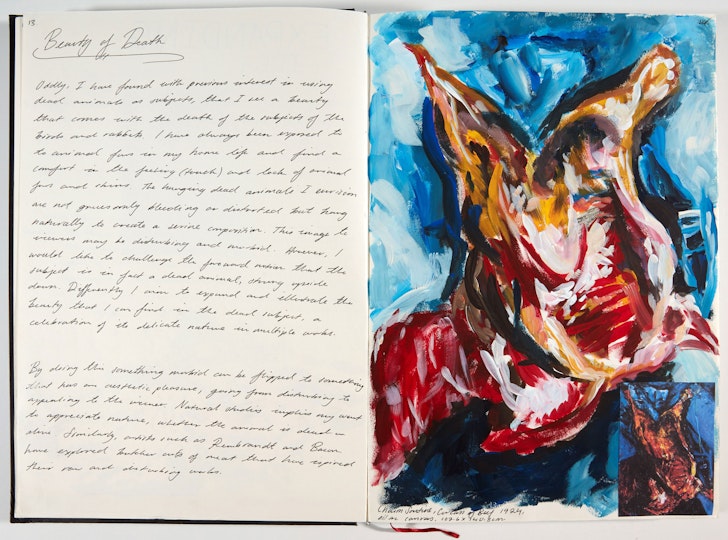 13
Beauty of Death
Oddly, I have found with previous interest in using
dead animals as subjects, that I see a beauty
that comes with the death of the subjects of the
birds and rabbits. I have always been exposed to
to animal furs in my home life and find a
comfort in the feeling (touch) and look of animal
furs and skins. The hanging dead animals I envision
are not gruesomely bleeding or distorted but hang
naturally to create a serine composition. This image to
viewers may be disturbing and morbid. However, I
would like to challenge the forward notion that the
subject is in fact a dead animal, strung upside
down. Differently I aim to expand and illustrate the
beauty that I can find in the dead subject, a
celebration of its delicate nature in multiple works.
By doing this something morbid can be flipped to something
that has an aesthetic pleasure, going from disturbing to
appealing to the viewer. Natural studies implies my want
to appreciate nature, whether the animal is dead or
alive. Similarly, artists such as Rembrandt and Bacon
have explored butcher cuts of meat that have inspired
their raw and disturbing works.
Chaim Soutine, Carcass of Beef 1924,
oil on canvas,